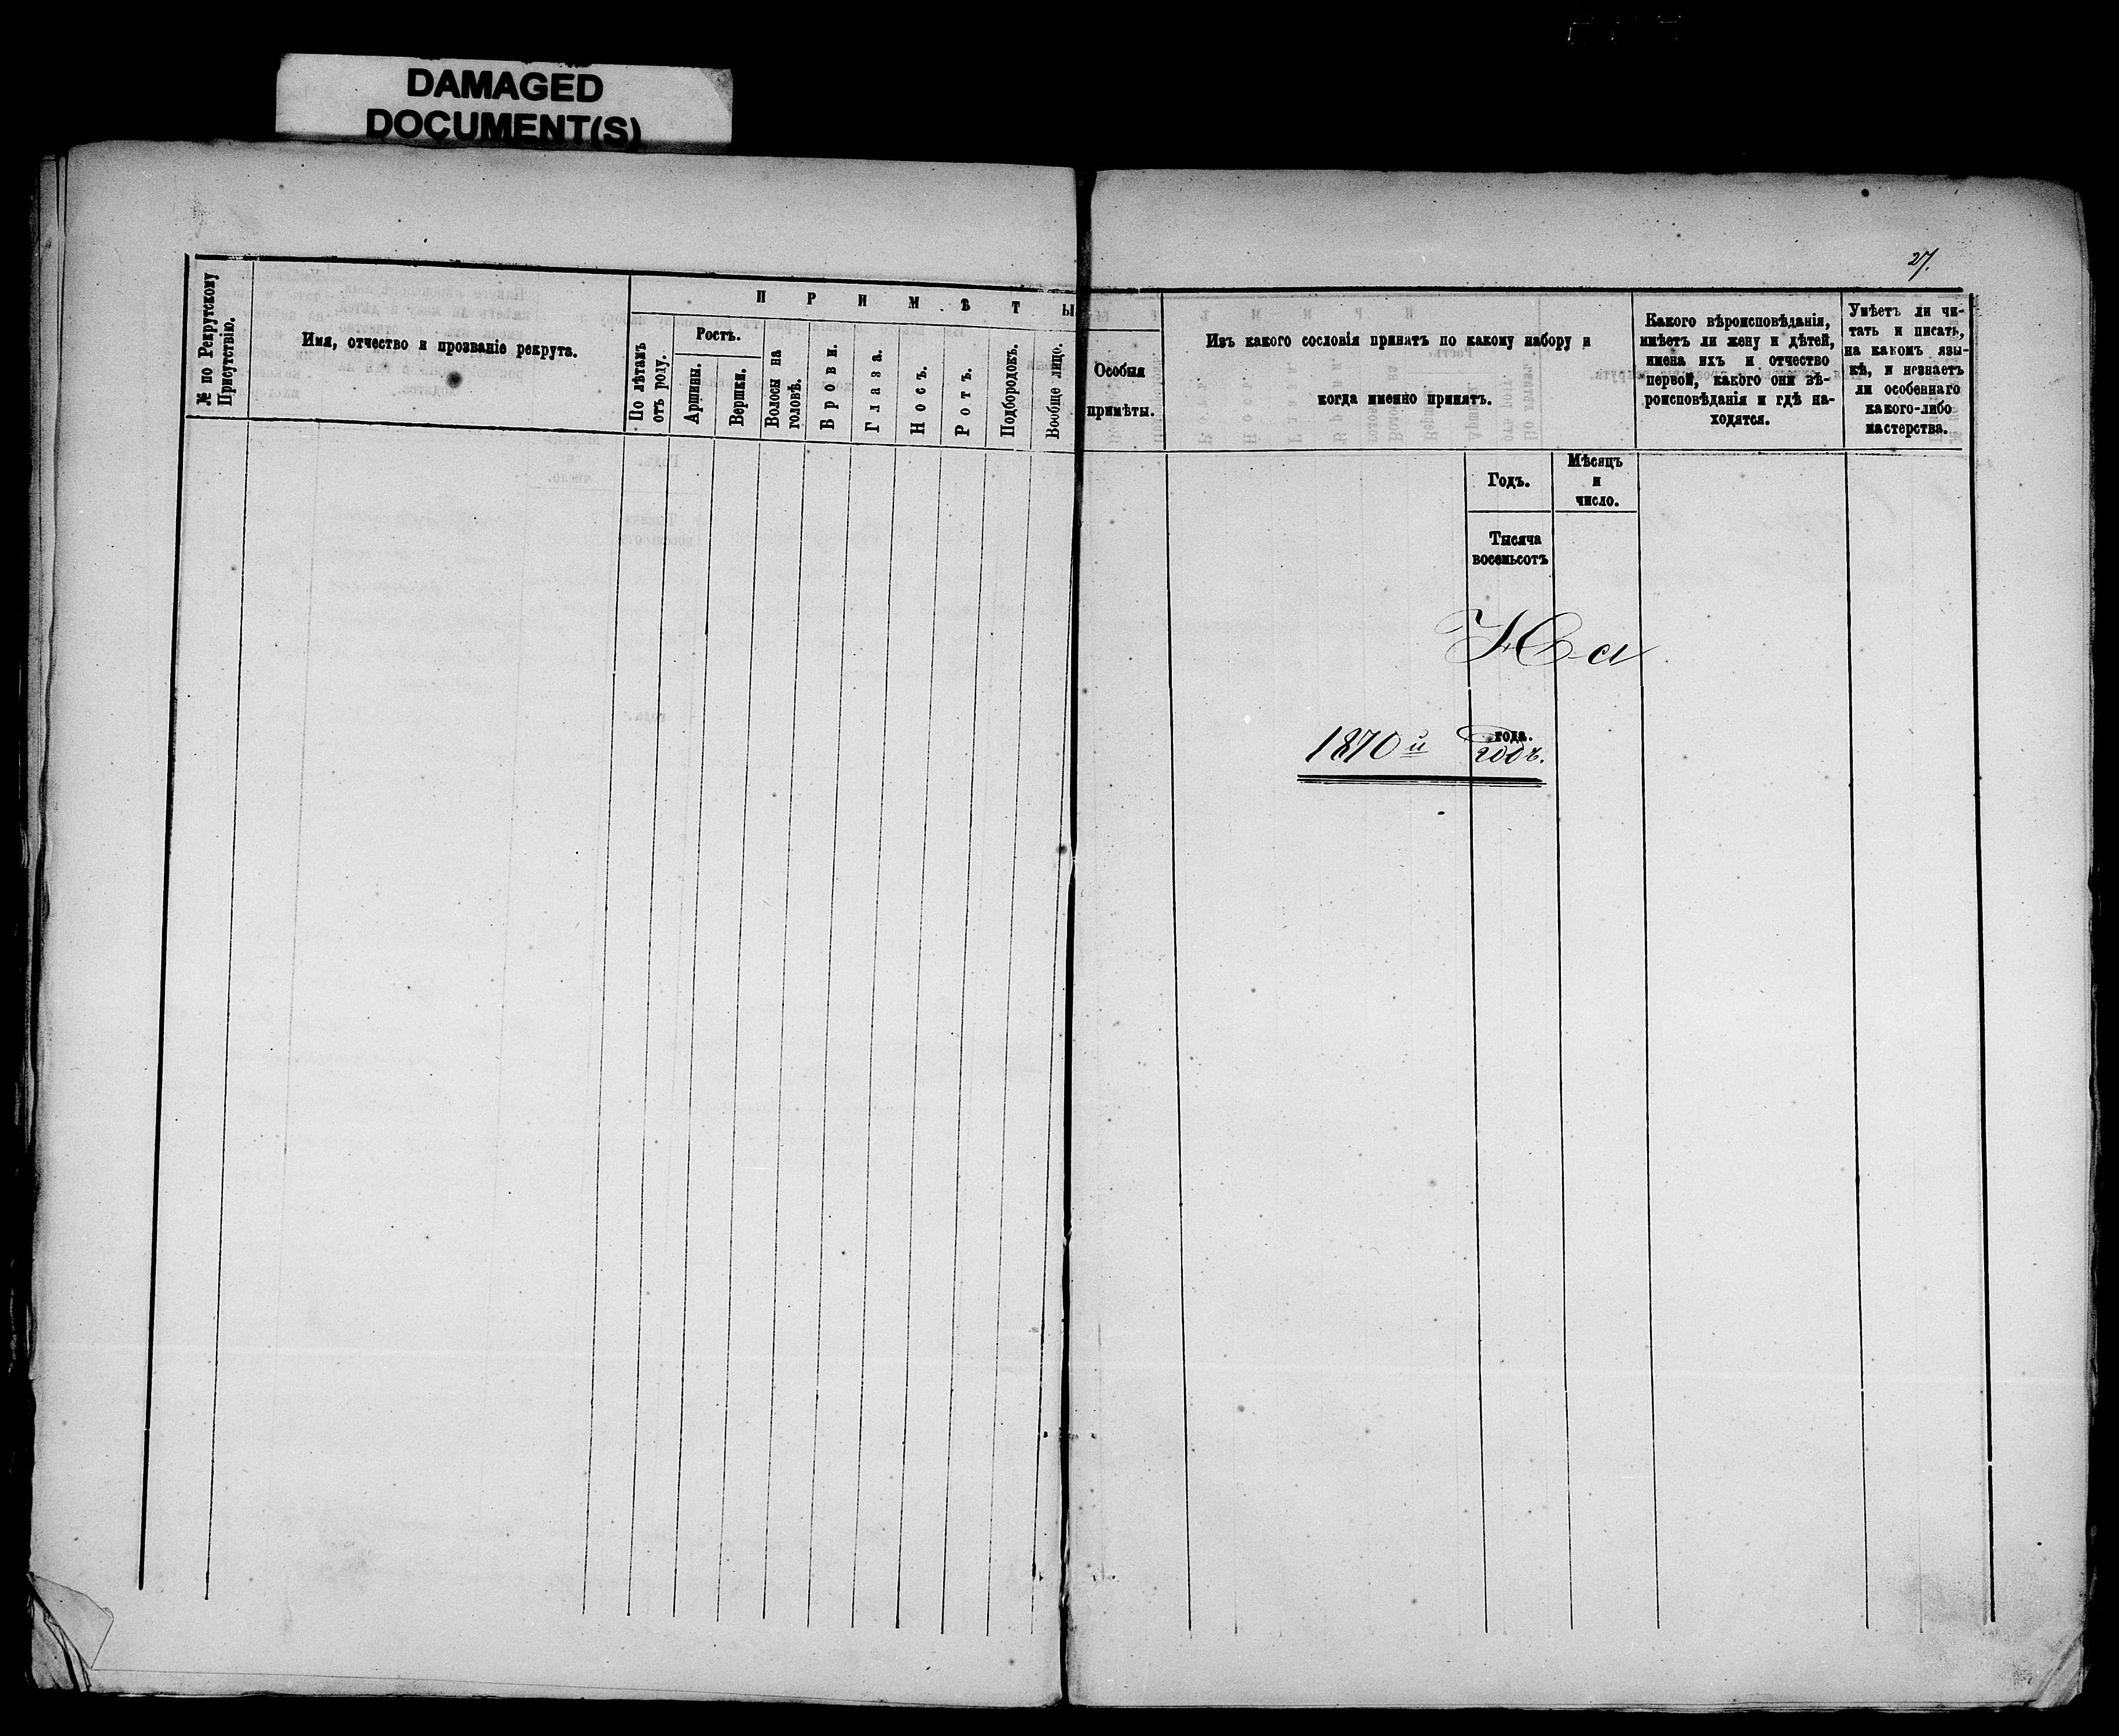 DAMAGED
DOCUMENT(S)
27.
№ по Рекрутскому
Присутствію.
Имя, отчество и прозваніе рекрута.
ПРИМѢТЫ
По лѣтамъ
отъ роду.
Ростъ.
Аршины.
Вершки.
Волосы на
головѣ.
Брови.
Глаза.
Носъ.
Ротъ.
Подбородокъ.
Вообще лице.
Особыя
примѣты.
Изъ какого сословія принятъ по какому набору и
когда именно принятъ.
Какого вѣроисповѣданія,
имѣетъ ли жену и дѣтей,
имена ихъ и отчество
первой, какого они вѣ-
роисповѣданія и гдѣ на-
ходятся.
Умѣетъ ли чи-
тать и писать,
на какомъ язы-
кѣ, и незнаетъ
ли особеннаго
какого-либо
мастерства.
Годъ.
Мѣсяцъ
и
число.
Тысяча
восемьсотъ
На
года.
1870й годъ.